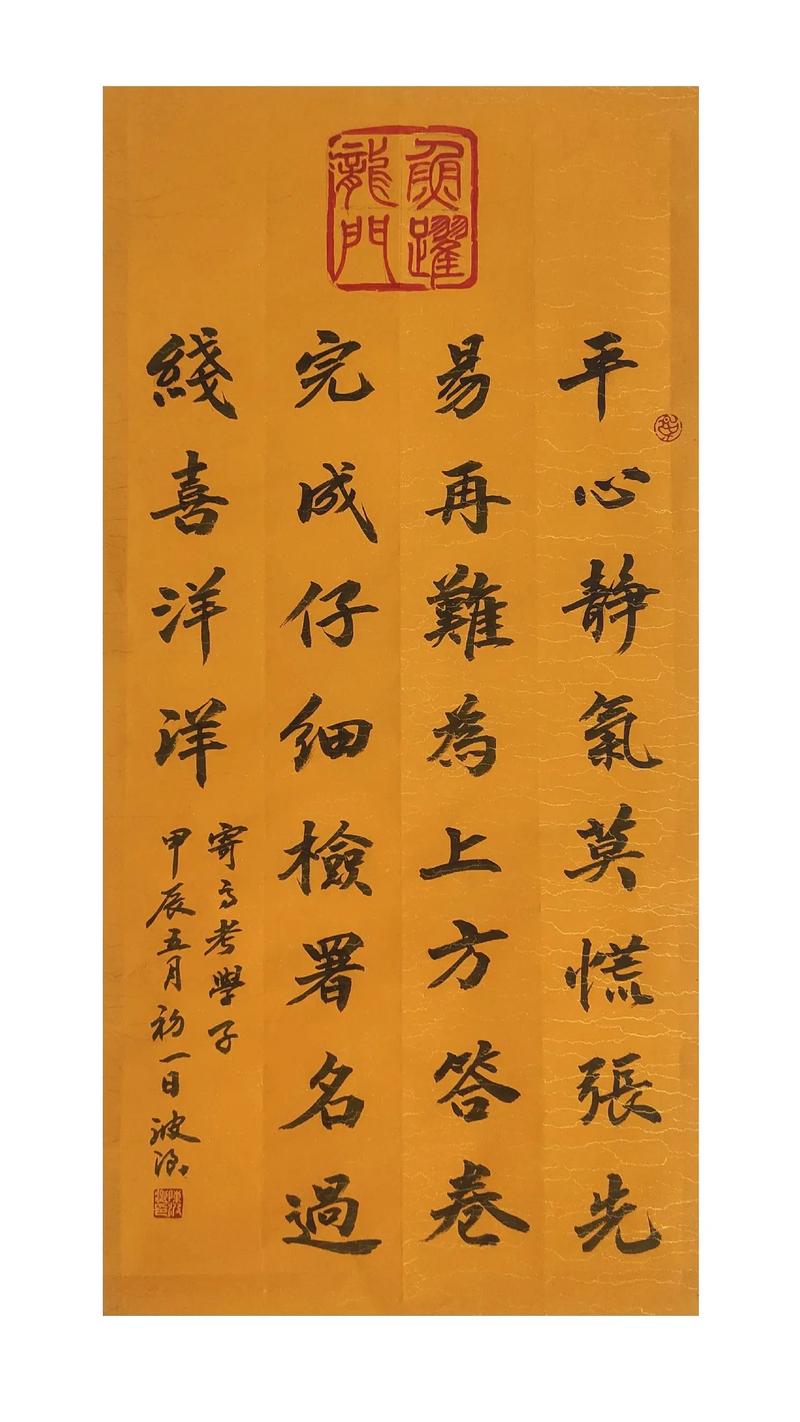 魚躍
龍門
平心静氣莫慌張先
易再難為上方答卷
完成仔細檢署名過
綫喜洋洋
寄高考學子
甲辰五月初一日波